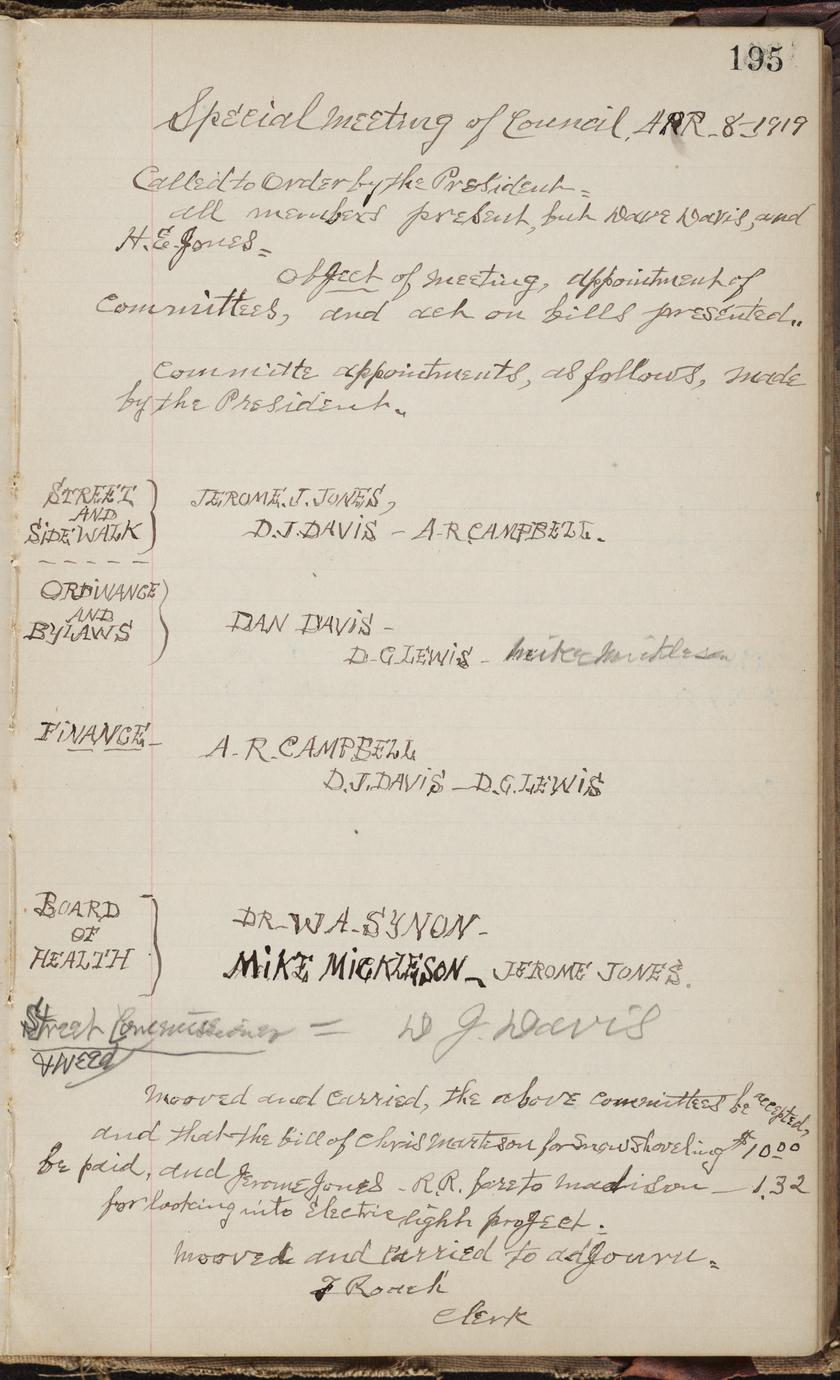 195
Special Meeting of Council, APR-8-1919
Called to Order by the President=
all members present, but Dave Davis, and
H.E. Jones=
Object of Meeting, appointment of
Committees, and act on bills presented..
Committe appointments, as follows, made
by the President..
STREET
AND
SIDEWALK
JEROME.J.JONES,
D.J.DAVIS - A-R.CAMPBELL.
ORDINANCE
AND
BYLAWS
DAN DAVIS -
D-G.LEWIS - Mike Mickleson
FINANCE-
A-R.CAMPBELL
D.J.DAVIS - D.G.LEWIS
BOARD
OF
HEALTH
DR-W A-SYNON-
MIKE MICKLESON - JEROME JONES.
Street Commissioner = D J. Davis
& WEED
Mooved and Carried, the above Committees be accepted,
and that the bill of Chris Marteson for Snow Shoveling $10.00
be paid, and Jerome Jones - R.R. fare to Madison - 1.32
for looking into Electric light project.
Mooved and Carried to adjourn=
J Roach
Clerk